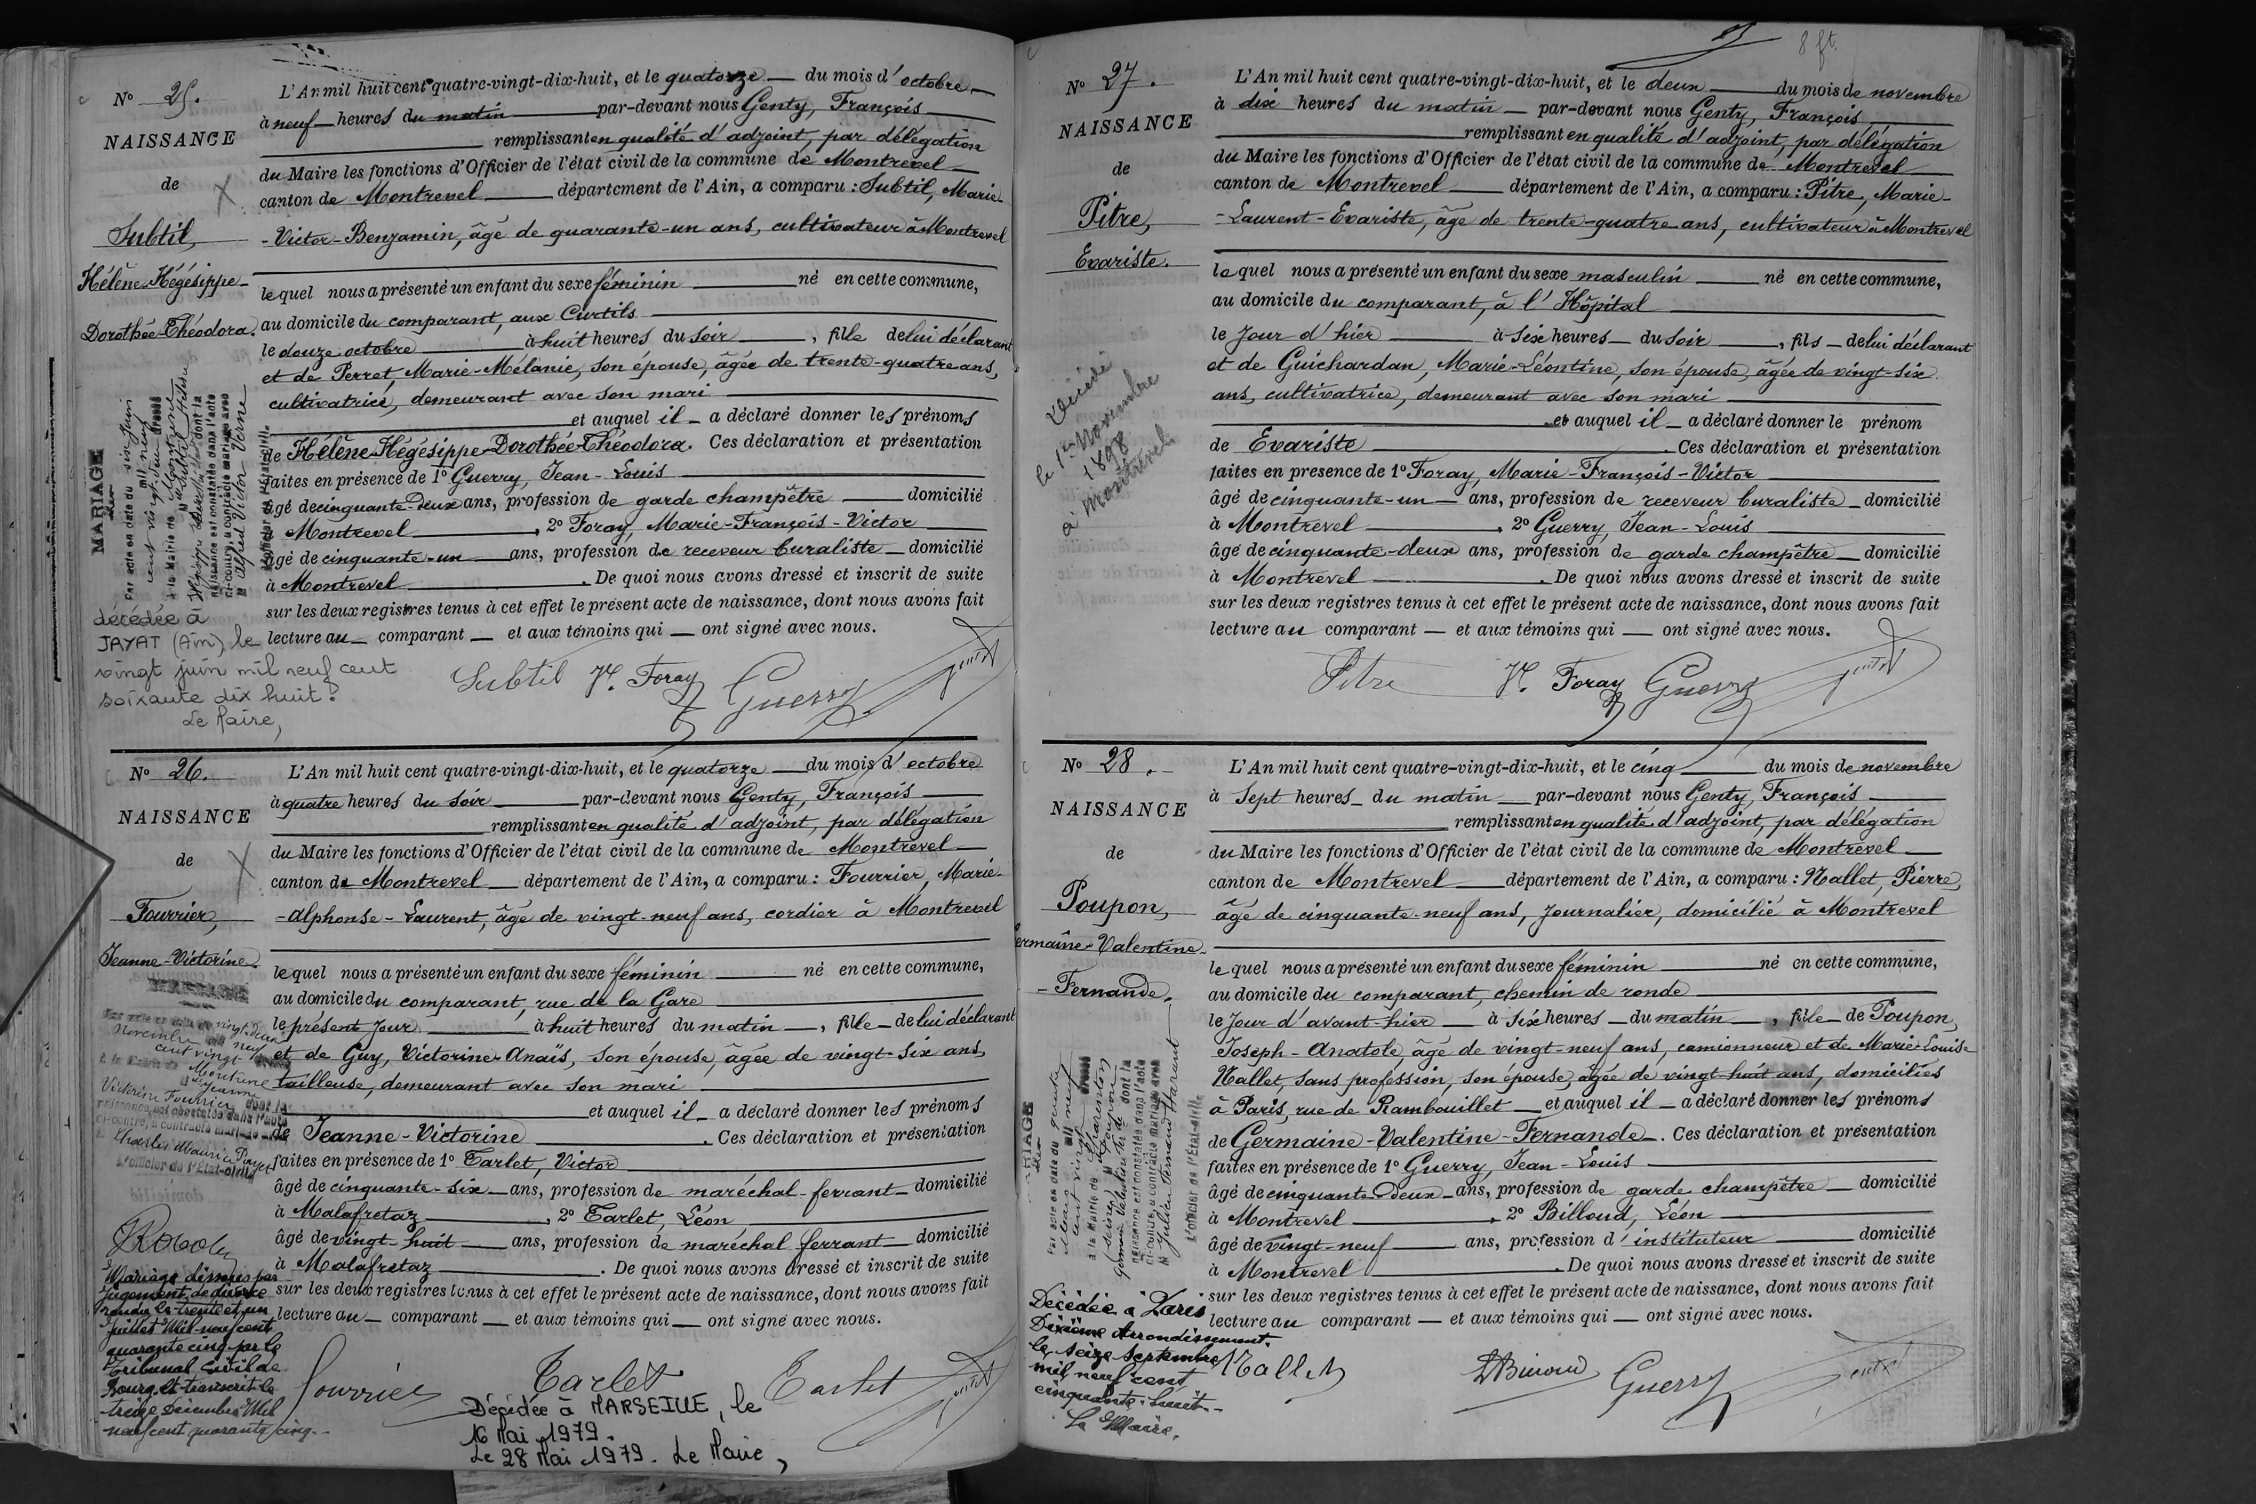 N° 25.
NAISSANCE
de
Subtil,
Hélène-Hégésippe-
Dorothée-Théodora.
L'An mil huit cent quatre-vingt-dix-huit, et le quatorze du mois d'octobre
à neuf heures du matin par-devant nous Genty, François
remplissant en qualité d'adjoint, par délégation
du Maire les fonctions d'Officier de l'état civil de la commune de Montrevel
canton de Montrevel département de l'Ain, a comparu : Subtil, Marie-
-Victor-Benjamin, âgé de quarante-un ans, cultivateur à Montrevel
lequel nous a présenté un enfant du sexe féminin né en cette commune,
au domicile du comparant, aux Curtils
le douze octobre à huit heures du soir, fille de lui déclarant
et de Perret, Marie-Mélanie, son épouse, âgée de trente-quatre ans,
cultivatrice, demeurant avec son mari
et auquel il a déclaré donner les prénoms
de Hélène-Hégésippe-Dorothée-Théodora. Ces déclaration et présentation
faites en présence de 1° Guerry, Jean-Louis
âgé de cinquante-deux ans, profession de garde champêtre domicilié
à Montrevel, 2° Foray, Marie-François-Victor
âgé de cinquante-un ans, profession de receveur buraliste domicilié
à Montrevel. De quoi nous avons dressé et inscrit de suite
sur les deux registres tenus à cet effet le présent acte de naissance, dont nous avons fait
lecture au comparant et aux témoins qui ont signé avec nous.
Subtil Vr. Foray Guerry Genty
MARIAGE
Par acte en date du six juin
mil neuf
cent vingt-deux dressé
à la Mairie de
naissance est constatée dans l'acte
ci-contre, a contracté mariage avec
M Alfred Victor Verne
L'Officier de l'État-civil,
décédée à
JAYAT (Ain), le
vingt juin mil neuf cent
soixante dix huit.
Le Maire,
N° 26.
NAISSANCE
de
Fourrier,
Jeanne-Victorine
L'An mil huit cent quatre-vingt-dix-huit, et le quatorze du mois d'octobre
à quatre heures du soir par-devant nous Genty, François
remplissant en qualité d'adjoint, par délégation
du Maire les fonctions d'Officier de l'état civil de la commune de Montrevel
canton de Montrevel département de l'Ain, a comparu : Fourrier, Marie-
-Alphonse-Laurent, âgé de vingt-neuf ans, cordier à Montrevel
lequel nous a présenté un enfant du sexe féminin né en cette commune,
au domicile du comparant, rue de la Gare
le présent jour à huit heures du matin, fille de lui déclarant
et de Guy, Victorine-Anaïs, son épouse, âgée de vingt-six ans,
tailleuse, demeurant avec son mari
et auquel il a déclaré donner les prénoms
de Jeanne-Victorine. Ces déclaration et présentation
faites en présence de 1° Tarlet, Victor
âgé de cinquante-six ans, profession de maréchal-ferrant domicilié
à Malafretaz, 2° Tarlet, Léon
âgé de vingt-huit ans, profession de maréchal ferrant domicilié
à Malafretaz. De quoi nous avons dressé et inscrit de suite
sur les deux registres tenus à cet effet le présent acte de naissance, dont nous avons fait
lecture au comparant et aux témoins qui ont signé avec nous.
Fourrier Tarlet Tarlet Genty
MARIAGE
Novembre mil neuf
cent vingt
Victorine Fourrier dont la
naissance est constatée dans l'acte
ci-contre, a contracté mariage avec
Charles Maurice
L'Officier de l'État-civil
Mariage dissous par
Jugement de divorce
rendu le trente et un
juillet Mil neuf cent
quarante cinq par le
Tribunal Civil de
Bourg et transcrit le
treize Décembre Mil
neuf cent quarante cinq.
Décédée à MARSEILLE, le
16 Mai 1979.
Le 28 Mai 1979. Le Maire,
8 ft.
N° 27.
NAISSANCE
de
Pitre,
Evariste.
L'An mil huit cent quatre-vingt-dix-huit, et le deux du mois de novembre
à dix heures du matin par-devant nous Genty, François
remplissant en qualité d'adjoint, par délégation
du Maire les fonctions d'Officier de l'état civil de la commune de Montrevel
canton de Montrevel département de l'Ain, a comparu : Pitre, Marie-
-Laurent-Evariste, âgé de trente-quatre ans, cultivateur à Montrevel
lequel nous a présenté un enfant du sexe masculin né en cette commune,
au domicile du comparant, à l'Hôpital
le jour d'hier à six heures du soir, fils de lui déclarant
et de Guichardan, Marie-Léontine, son épouse, âgée de vingt-six
ans, cultivatrice, demeurant avec son mari
et auquel il a déclaré donner le prénom
de Evariste. Ces déclaration et présentation
faites en présence de 1° Foray, Marie-François-Victor
âgé de cinquante-un ans, profession de receveur buraliste domicilié
à Montrevel, 2° Guerry, Jean-Louis
âgé de cinquante-deux ans, profession de garde champêtre domicilié
à Montrevel. De quoi nous avons dressé et inscrit de suite
sur les deux registres tenus à cet effet le présent acte de naissance, dont nous avons fait
lecture au comparant et aux témoins qui ont signé avec nous.
Pitre Vr. Foray Guerry Genty
Décédé
le 1er Novembre
1898
à Montrevel
N° 28.
NAISSANCE
de
Poupon,
Germaine-Valentine-
-Fernande.
L'An mil huit cent quatre-vingt-dix-huit, et le cinq du mois de novembre
à sept heures du matin par-devant nous Genty, François
remplissant en qualité d'adjoint, par délégation
du Maire les fonctions d'Officier de l'état civil de la commune de Montrevel
canton de Montrevel département de l'Ain, a comparu : Nallet, Pierre,
âgé de cinquante-neuf ans, journalier, domicilié à Montrevel
lequel nous a présenté un enfant du sexe féminin né en cette commune,
au domicile du comparant, chemin de ronde
le jour d'avant-hier à six heures du matin, fille de Poupon,
Joseph-Anatole, âgé de vingt-neuf ans, camionneur et de Marie-Louise
Nallet, sans profession, son épouse, âgée de vingt-huit ans, domiciliés
à Paris, rue de Rambouillet et auquel il a déclaré donner les prénoms
de Germaine-Valentine-Fernande. Ces déclaration et présentation
faites en présence de 1° Guerry, Jean-Louis
âgé de cinquante-deux ans, profession de garde champêtre domicilié
à Montrevel, 2° Billoud, Léon
âgé de vingt-neuf ans, profession d'instituteur domicilié
à Montrevel. De quoi nous avons dressé et inscrit de suite
sur les deux registres tenus à cet effet le présent acte de naissance, dont nous avons fait
lecture au comparant et aux témoins qui ont signé avec nous.
Nallet LBilloud Guerry Genty
MARIAGE
mil neuf
cent vingt dressé
à la Mairie de Charenton
dont la
naissance est constatée dans l'acte
ci-contre, a contracté mariage avec
M Julien Fernand
L'Officier de l'État-civil
Décédée à Paris
Dixième Arrondissement
le seize Septembre
mil neuf cent
cinquante-huit-
Le Maire.